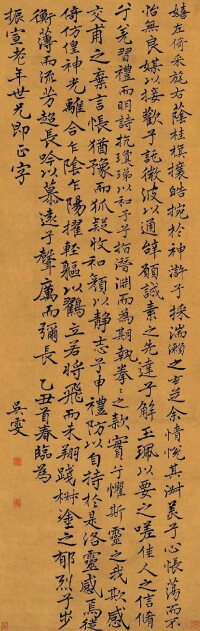 嬉左倚采旄右蔭桂旗攘皓捥於神滸兮採湍瀨之玄芝余情悅其淑美兮心悵蕩而不
怡無良媒以接歡兮託微波以通辭願誠素之先達兮解玉珮以要之嗟佳人之信脩
兮羌習禮而明詩抗瓊珶以和予兮指潛淵而為期執拳拳之款實兮懼斯靈之我欺感
交甫之棄言悵猶豫而狐疑收和顏以靜志兮申禮防以自持於是洛靈感焉徙
倚彷徨神光離合乍陰乍陽擢輕軀以鶴立若將飛而未翔踐椒塗之郁烈兮步
衡薄而流芳超長吟以慕遠兮聲厲而彌長 乙丑首春臨為
振宣老年世兄即正字
吳雯